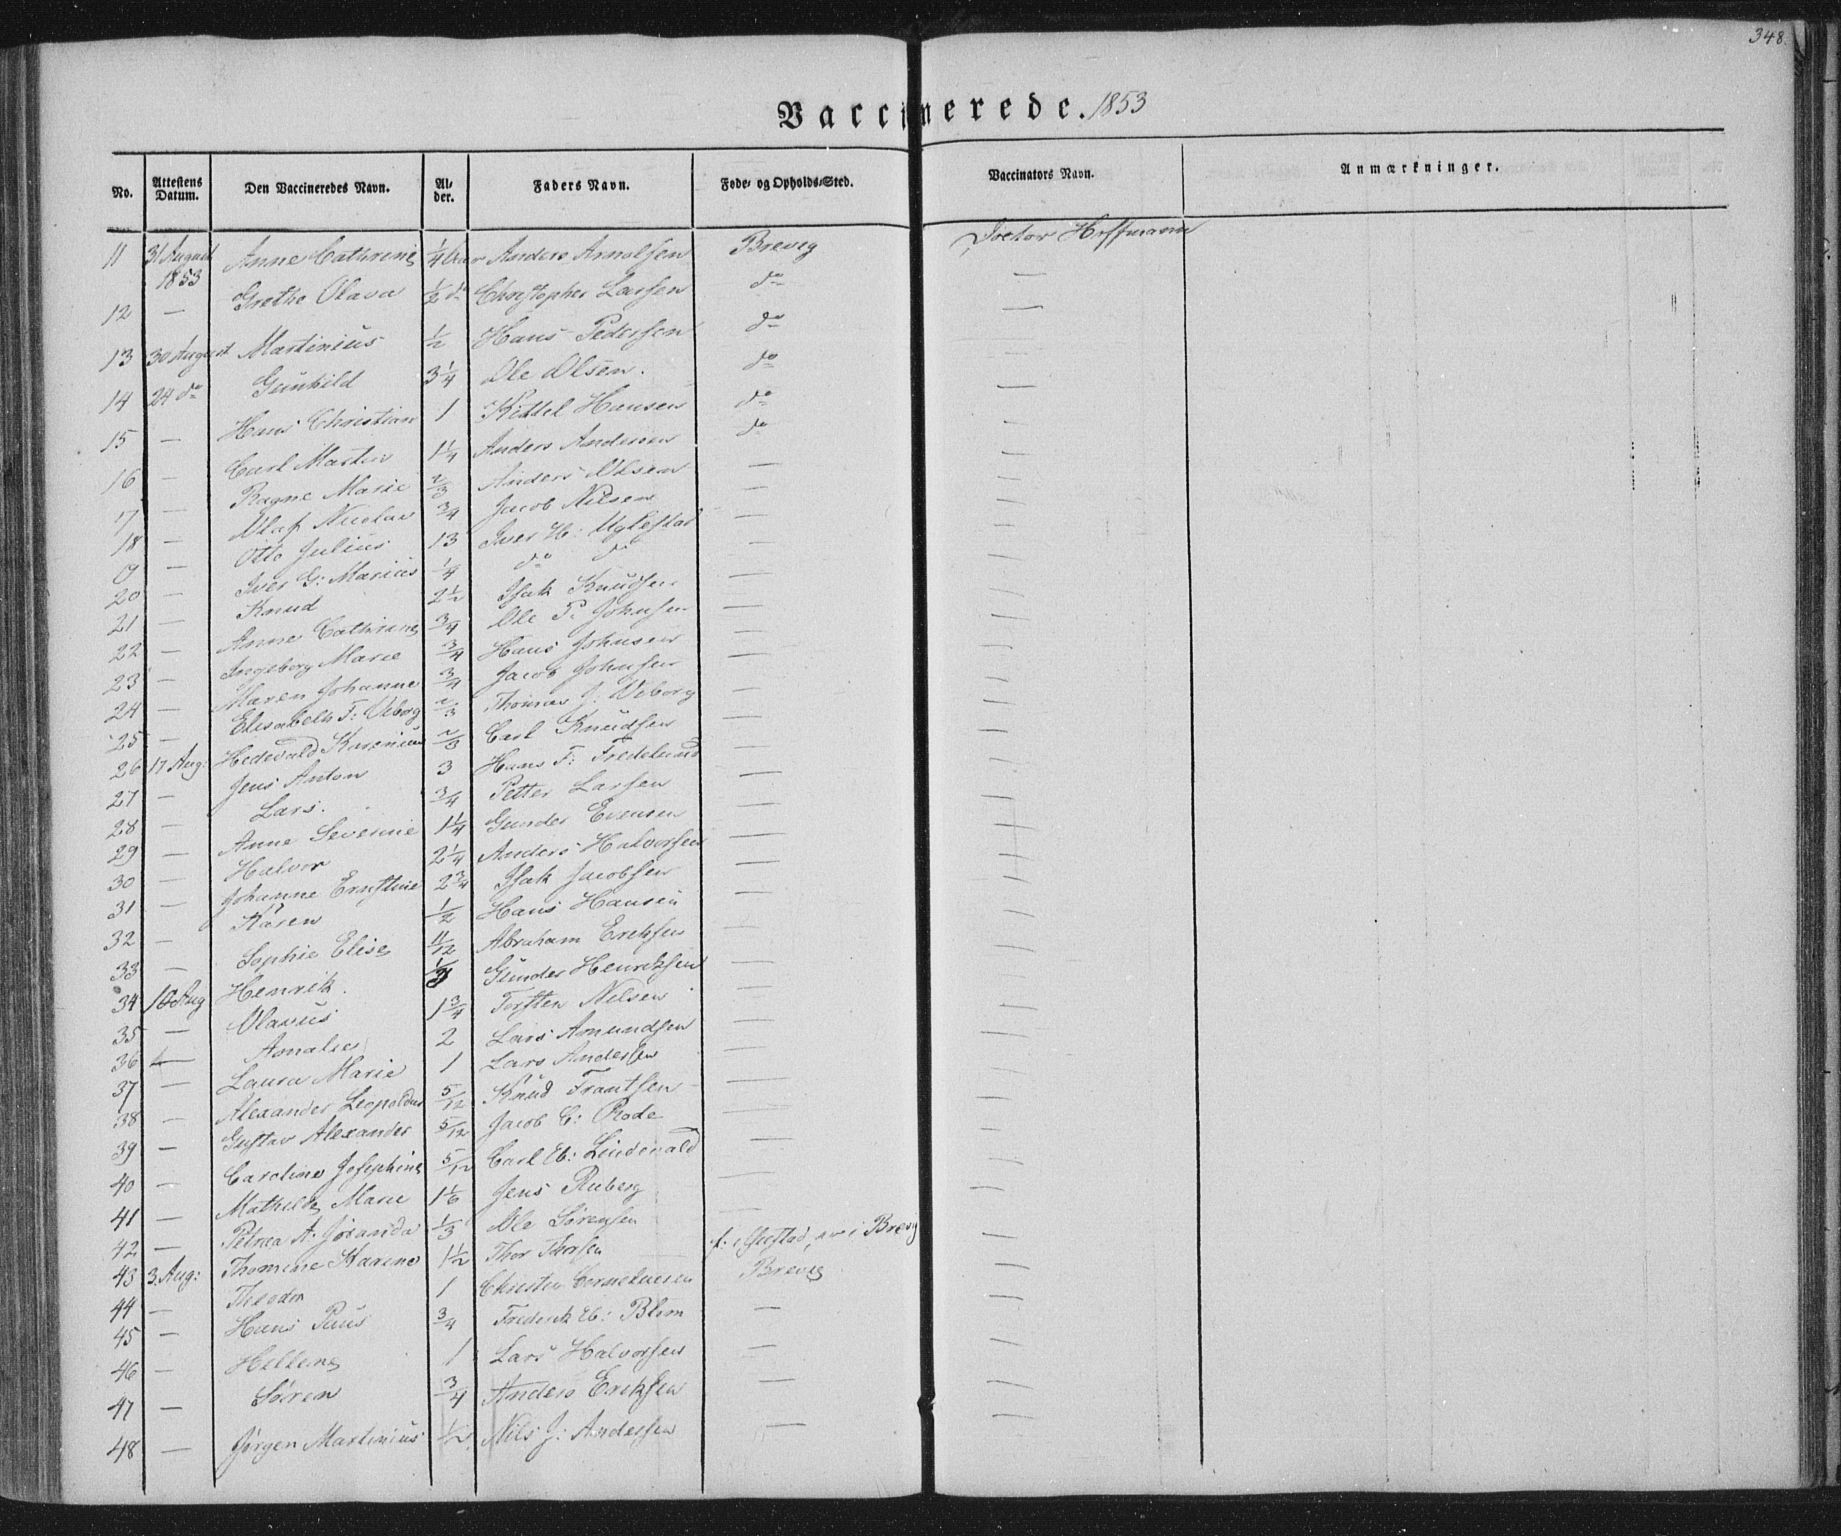 348.
Vaccinerede. 1853
No. Attestens Datum. Den Vaccineredes Navn. Al- der. Faders Navn. Føde- og Opholds-Sted. Vaccinators Navn. Anmærkninger.
11 31 August 1853 Anne Cathrine 1/4 Aar Anders Arnolsen Brevig Doctor Hoffmann
12 — Grethe Olava 1/2 do Christopher Larsen do —
13 30 August Martinius 1/2 Hans Pedersen do —
14 24 do Gunhild 3 1/4 Ole Olsen. do —
15 — Hans Christian 1 Kittel Hansen do —
16 — Carl Martin 1 1/4 Anders Andersen do —
17 — Ragne Marie 2/3 Anders Olsen — —
18 — Olaf Nicolai 3/4 Jacob Nilsen — —
19 — Otto Julius 13 Iver H: Uglestad — —
20 — Iver G: Marius 1/4 do do — —
21 — Knud 2 1/2 Isak Knudsen — —
22 — Anne Cathrine 3/4 Ole P. Johnsen — —
23 — Ingeborg Marie 3/4 Hans Johnsen — —
24 — Maren Johanne 3/4 Jacob Johnsen — —
25 — Elisabeth T: Viborg 2/3 Thomas J: Viborg — —
26 17 Aug: Hedevald Karenius 2/3 Carl Knudsen — —
27 — Jens Anton 3 Hans F: Fredelund — —
28 — Lars. 3/4 Petter Larsen — —
29 — Anne Severine 1 1/4 Gunder Evensen — —
30 — Halvor 2 1/4 Anders Halvorsen — —
31 — Johanne Ernstine 2 3/4 Isak Jacobsen — —
32 — Karen 1/2 Hans Hansen — —
33 — Sophie Elise 11/12 Abraham Ereksen — —
34 16 Aug Henrik. Gunder Henriksen — —
35 — Olavus 1 3/4 Torsten Nilsen — —
36 — Amalie 2 Lars Amundsen — —
37 — Laura Marie 1 Lars Andersen — —
38 — Alexander Leopoldus 5/12 Knud Frantsen — —
39 — Gustav Alexander 5/12 Jacob C: Rode — —
40 — Caroline Josephine 5/12 Carl E: Lindevald — —
41 — Mathilde Marie 1 1/6 Jens Ruberg — —
42 — Petrea A. Joranda 1/3 Ole Sørensen — —
43 3 Aug: Thomine Karine 1 1/2 Thor Thorsen f: i , nu i Brevig —
44 — Theodor 1 Christen Corneliusen Brevig —
45 — Hans Paus 3/4 Frederik E: Blom — —
46 — Hellene 1 Lars Halvorsen — —
47 — Søren 3/4 Anders Ereksen — —
48 — Jørgen Martinius 1/2 Nils J: Andersen — —